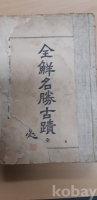 全鮮名勝古蹟
全
kobay